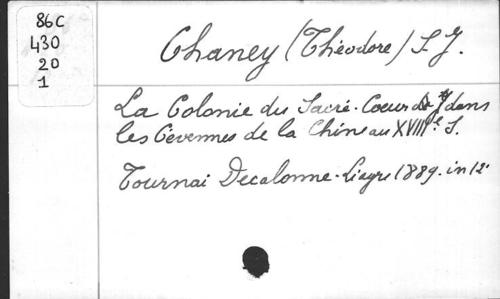 86C
430
20
1
Chaney (Théodore) S. J.
La Colonie du Sacré-Coeur de J dans
les Cévennes de la Chine au XVIIIe S.
Tournai Decalonne-Liagre 1889. in 12.